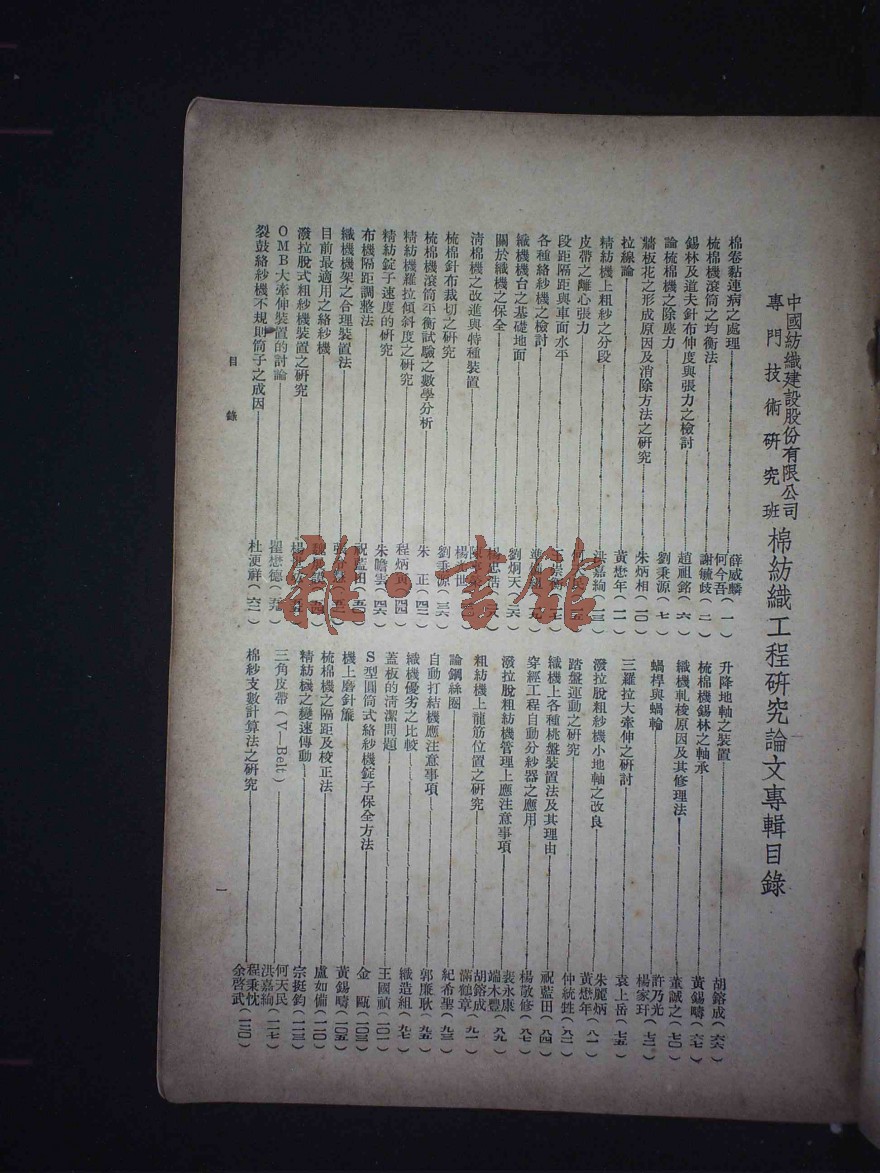 中國紡織建設股份有限公司
專門技術研究班
棉紡織工程研究論文專輯目錄
棉卷黏連病之處理 薛威麟 何今吾(一)
梳棉機滾筒之均衡法 謝毓歧(二)
錫林及道夫針布伸度與張力之檢討 趙祖銘(六)
論梳棉機之除塵力 劉秉源(七)
牆板花之形成原因及消除方法之研究 朱炳相(一〇)
拉線論 黃懋年(一一)
精紡機上粗紗之分段 洪嘉絢(一三)
皮帶之離心張力
段距隔距與車面水平
各種絡紗機之檢討
織機機台之基礎地面 劉炯天
關於織機之保全
清棉機之改進與特種裝置
梳棉針布裁切之研究 劉秉源(三六)
梳棉機滾筒平衡試驗之數學分析 朱 正(四二)
精紡機羅拉傾斜度之研究 程炳
精紡錠子速度的研究 朱瞻雲(四六)
布機隔距調整法 祝藍田(五〇)
織機機架之合理裝置法
目前最適用之絡紗機
潑拉脫式粗紗機裝置之研究
OMB大牽伸裝置的討論 瞿懋德(五九)
裂鼓絡紗機不規則筒子之成因 杜浭祥(六二)
升降地軸之裝置 胡鎔成(六六)
梳棉機錫林之軸承 黃錫疇(六七)
織機軋梭原因及其修理法 董誠之(七〇)
蝸桿與蝸輪 許乃光 楊家玕(七二)
三羅拉大牽伸之研討 袁上岳(七五)
潑拉脫粗紗機小地軸之改良 朱麗炳 黃懋年(八一)
踏盤運動之研究 仲統甡(八二)
織機上各種桃盤裝置法及其理由 祝藍田(八四)
穿經工程自動分紗器之應用 楊敬修(八七)
潑拉脫粗紡機管理上應注意事項 裴永康 端木豐(八九)
粗紡機上龍筋位置之研究 胡鎔成 滿鶴章(九一)
論鋼絲圈 紀希聖(九三)
自動打結機應注意事項 郭廉耿(九五)
織機優劣之比較 織造組(九七)
蓋板的清潔問題 王國禎(一〇一)
S型圓筒式絡紗機錠子保全方法 金 甌(一〇三)
機上磨針簾 黃錫疇(一〇五)
梳棉機之隔距及校正法 盧如備(一一〇)
精紡機之變速傳動 宗挺鈞(一一三)
三角皮帶(V—Belt) 何天民 洪嘉絢(一一七)
棉紗支數計算法之研究 程秉忱 余啓武(一三〇)
目 錄
一
雜·書館